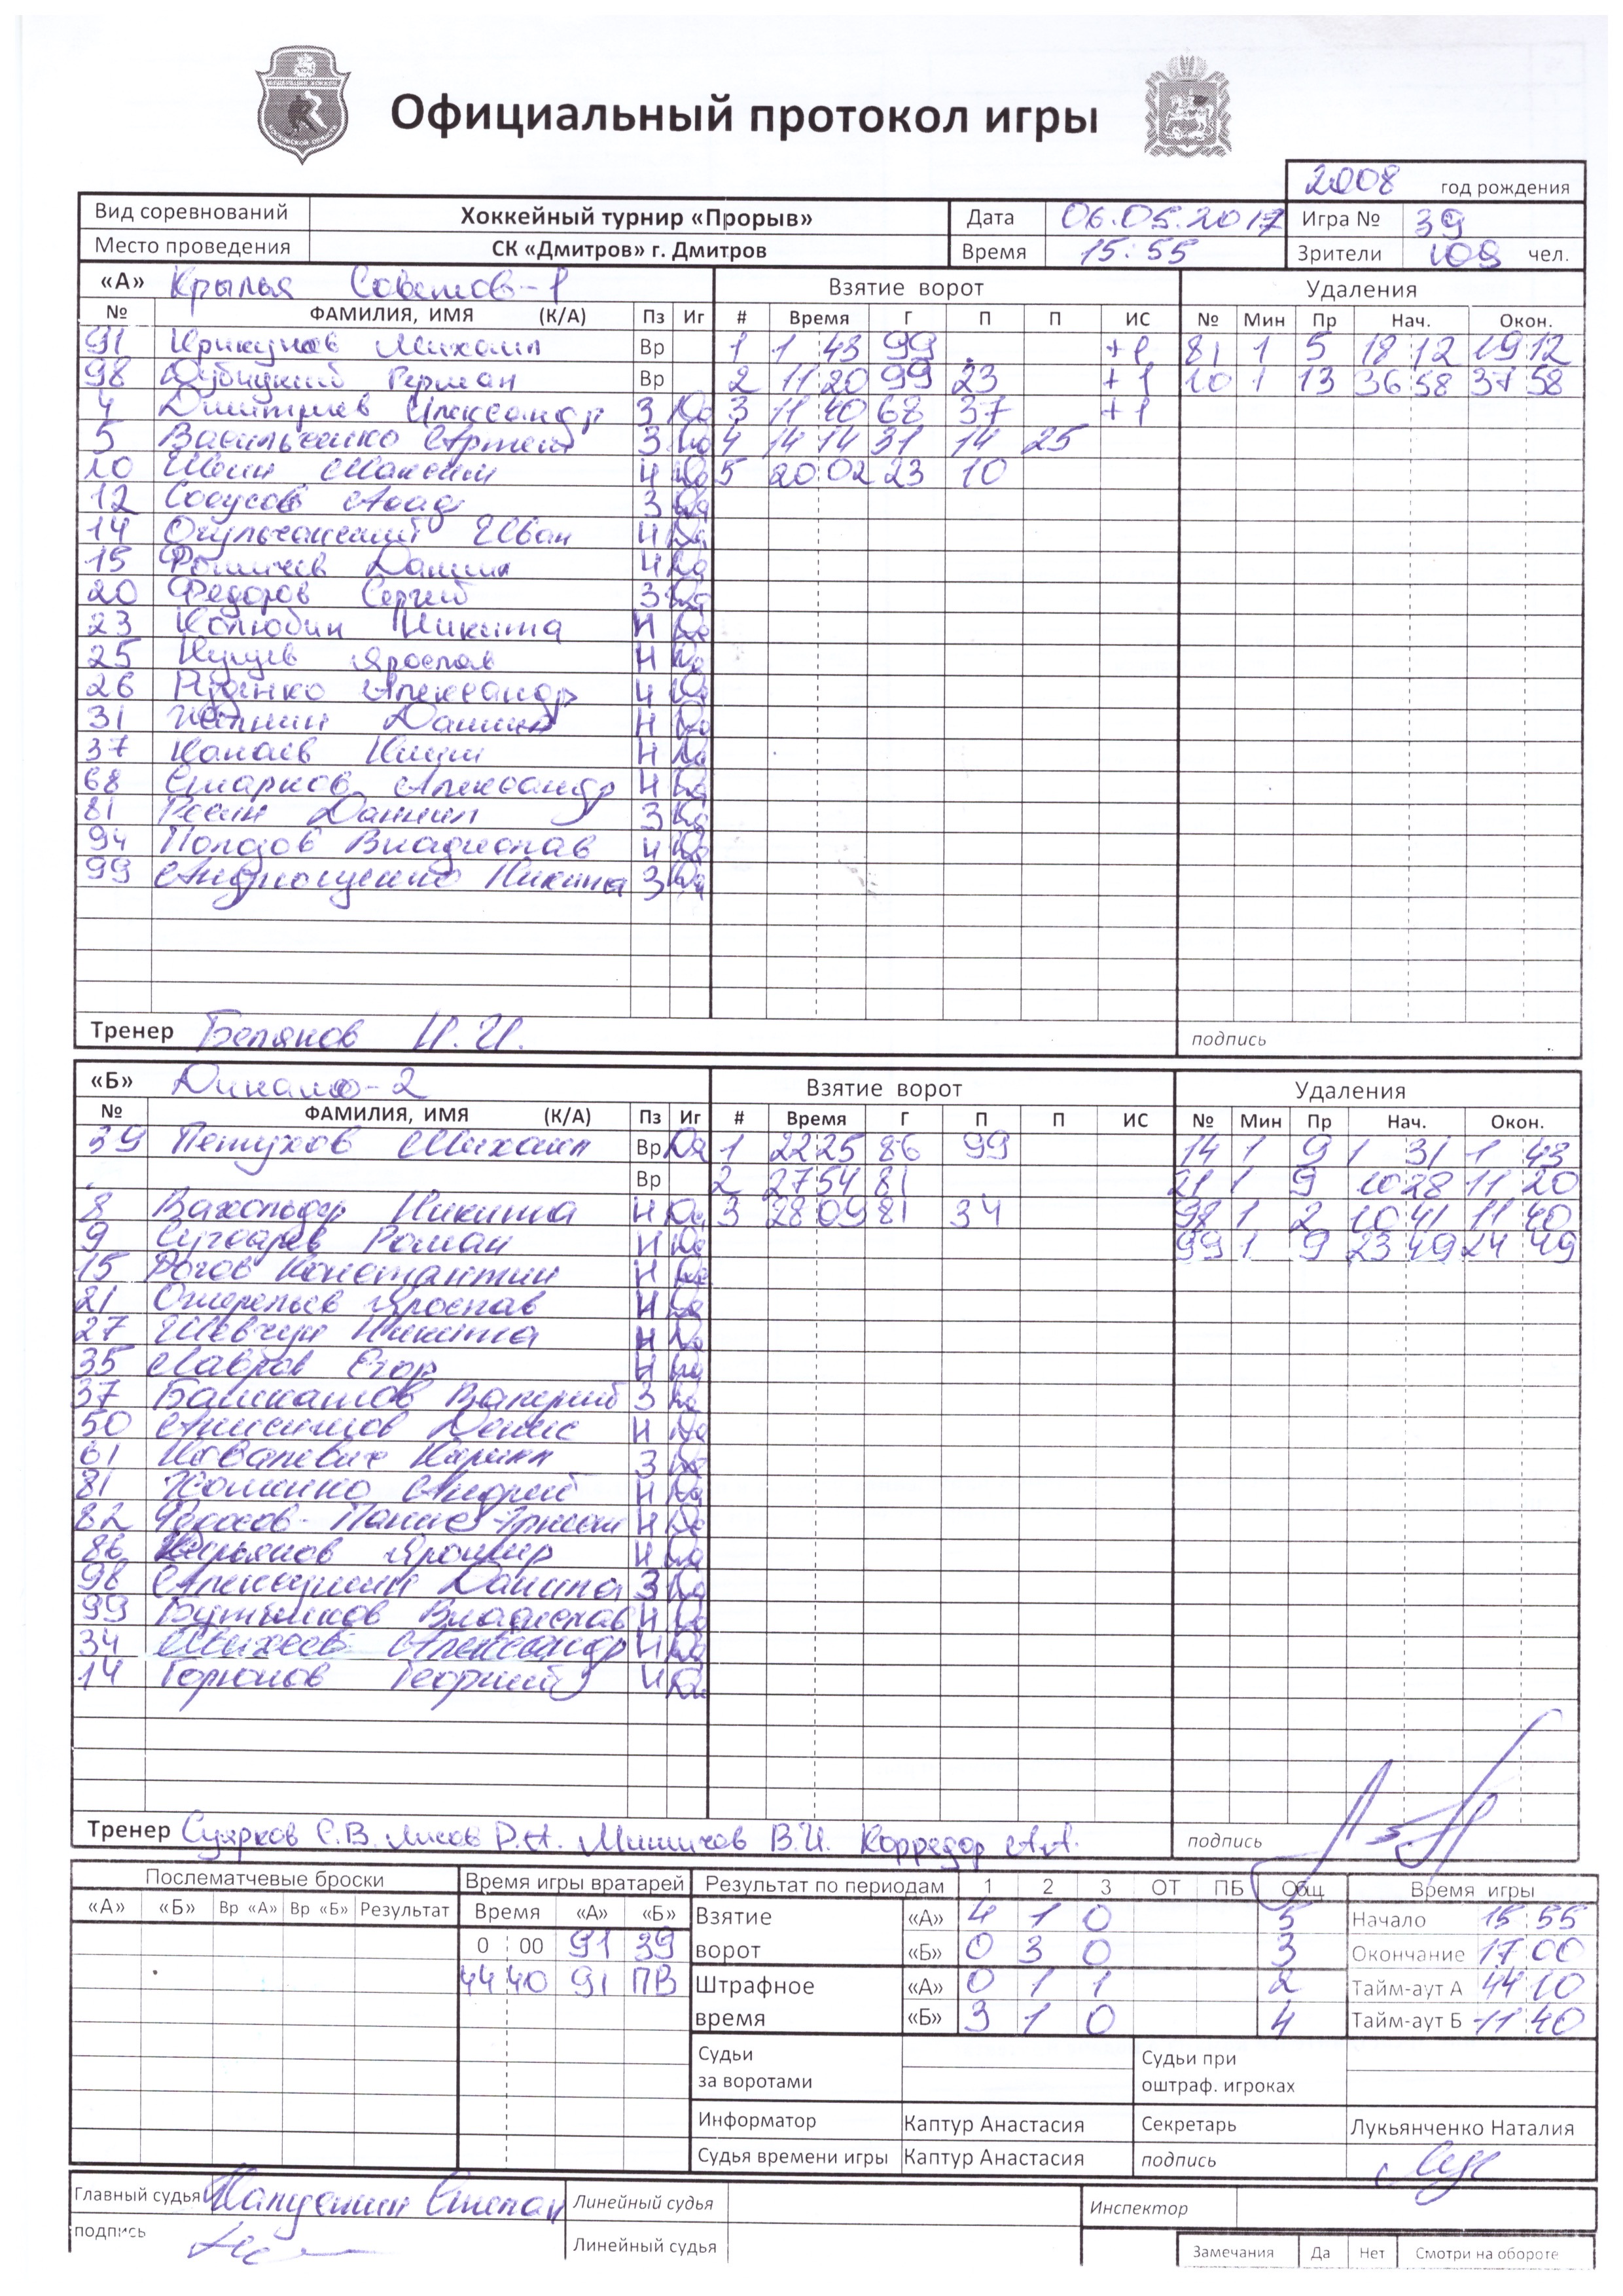 Официальный протокол игры
2008 год рождения
Вид соревнований Хоккейный турнир «Прорыв» Дата 06.05.2017 Игра № 39
Место проведения СК «Дмитров» г. Дмитров Время 15:55 Зрители 109 чел.
«А» Крылья Советов-1 Взятие ворот Удаления
№ ФАМИЛИЯ, ИМЯ (К/А) Пз Иг # Время Г П П ИС № Мин Пр Нач. Окон.
91 Крикунов Михаил Вр 1 1 43 99 +1 81 1 5 18 12 19 12
98 Дубицкий Герман Вр 2 11 20 99 23 +1 10 1 13 36 58 37 58
4 Дмитриев Александр З Да 3 11 40 68 37 +1
5 Васильченко Артем З Да 4 14 14 31 14 25
10 Шеин Максим Н Да 5 20 02 23 10
12 З Да
14 Иван Н Да
15 Фомичев Данил Н Да
20 Федоров Сергей З Да
23 Колюбин Никита Н Да
25 Ярослав Н Да
26 Руденко Александр Н Да
31 Данила Н Да
37 Канаев Н Да
68 Старков Александр Н Да
81 Ресин Даниил З Да
94 Полозов Владислав Н Да
99 Андрющенко Никита З Да
Тренер Беляков И.И. подпись
«Б» Динамо-2 Взятие ворот Удаления
№ ФАМИЛИЯ, ИМЯ (К/А) Пз Иг # Время Г П П ИС № Мин Пр Нач. Окон.
39 Петухов Михаил Вр Да 1 22 25 86 99 14 1 9 1 31 1 43
Вр 2 27 54 81 21 1 9 10 28 11 20
8 Никита Н Да 3 28 09 81 34 98 1 2 10 41 11 40
9 Роман Н Да 99 1 9 23 49 24 49
15 Рогов Константин Н Да
21 Ожерельев Ярослав Н Да
27 Шевчук Никита Н Да
35 Лавров Егор Н Да
37 Башкатов Валерий З Да
50 Анисимов Денис Н Да
61 Ковалевич Кирилл З Да
81 Хоменко Андрей Н Да
82 Н Да
86 Кирьянов Яромир Н Да
98 Данила З Да
99 Бутылков Владислав Н Да
34 Михеев Александр Н Да
14 Горюнов Георгий Н Да
Тренер Сухрков С.В. Лисов Р.Н. Мишичев В.И. Корредор А.А. подпись
Послематчевые броски Время игры вратарей Результат по периодам 1 2 3 ОТ ПБ Общ Время игры
«А» «Б» Вр «А» Вр «Б» Результат Время «А» «Б» Взятие «А» 4 1 0 5 Начало 15 55
0 00 91 39 ворот «Б» 0 3 0 3 Окончание 17 00
44 40 91 ПВ Штрафное «А» 0 1 1 2 Тайм-аут А 44 10
время «Б» 3 1 0 4 Тайм-аут Б 11 40
Судьи за воротами Судьи при оштраф. игроках
Информатор Каптур Анастасия Секретарь Лукьянченко Наталия
Судья времени игры Каптур Анастасия подпись
Главный судья Степан Линейный судья Инспектор
подпись Линейный судья Замечания Да Нет Смотри на обороте